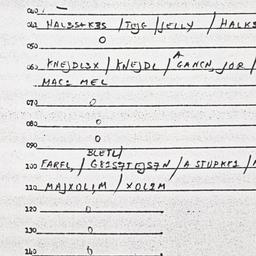 040
041 HALZSTKES / TEJG / JELLY / HALKS
050 0
060 KNEJDLEX / KNEJDL / A GANCN, JOR /
MACE MEL
070 0
080 0
090 0
BLETL /
100 FARFL, / / A STUPKES /
110 MAJXOLIM / XOLEM
120 0
130 0
140 0